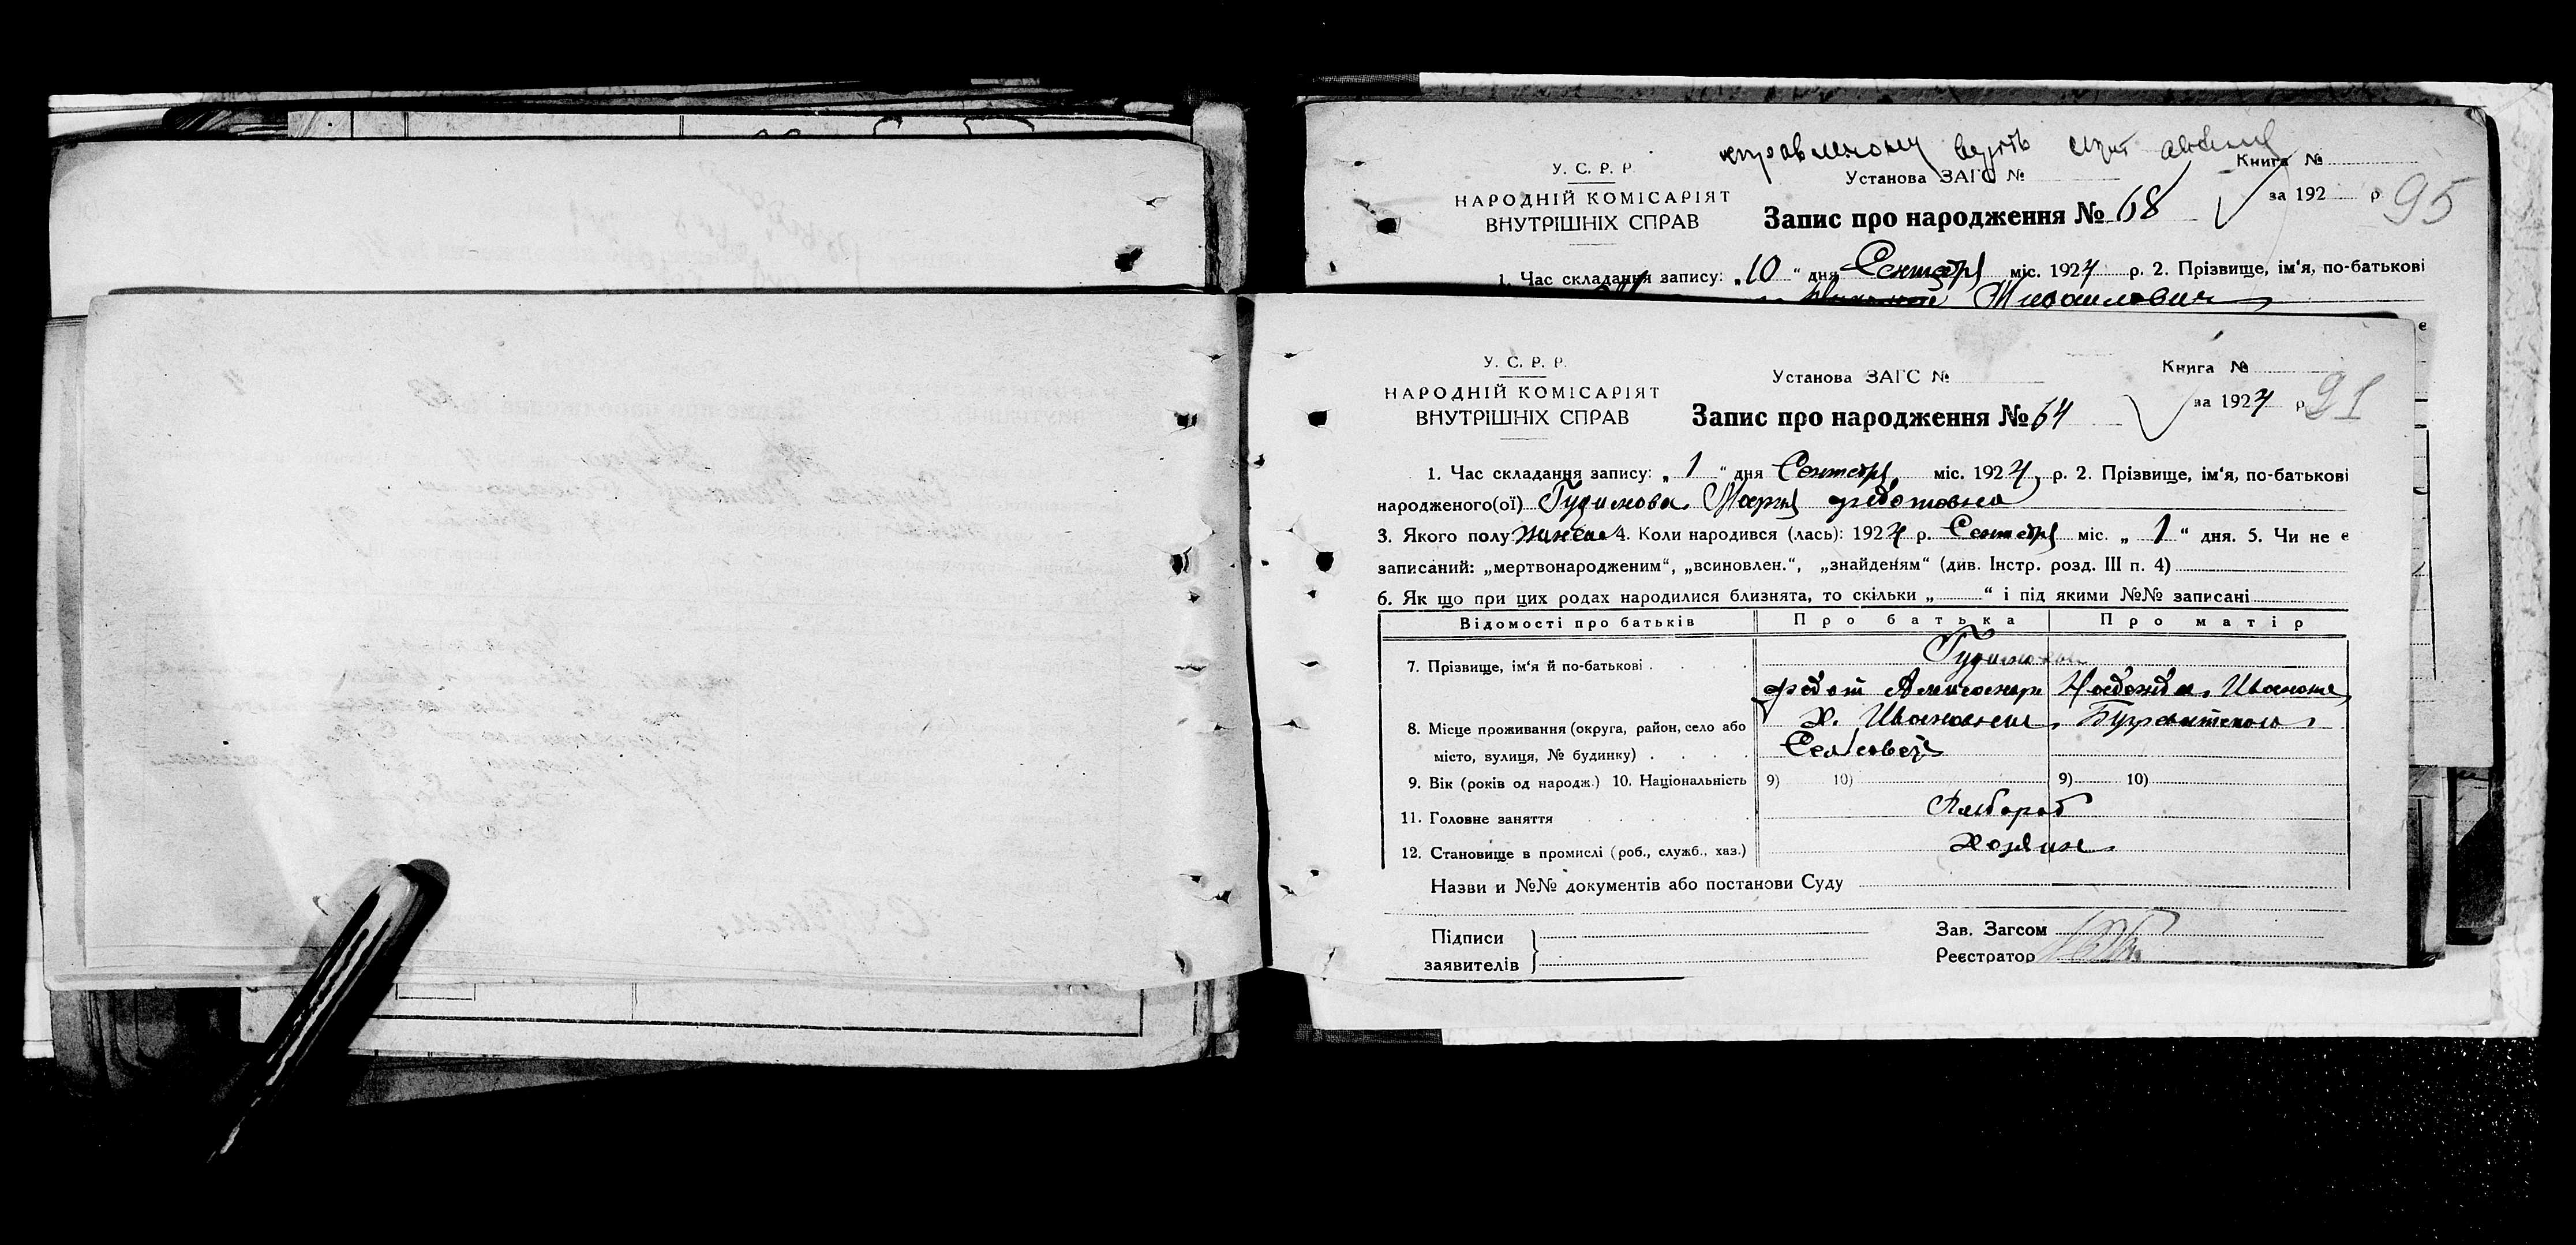 У. С. Р. Р.
НАРОДНІЙ КОМІСАРІЯТ
ВНУТРІШНІХ СПРАВ
Установа ЗАГС №
Книга №
за 192 р 95
Запис про народження № 68
1. Час складання запису: „10“ дня Сентябр міс. 1924 р. 2. Прізвище, ім‘я, по-батькові
Михаилович
У. С. Р. Р.
НАРОДНІЙ КОМІСАРІЯТ
ВНУТРІШНІХ СПРАВ
Установа ЗАГС №
Книга №
за 1924 р 91
Запис про народження № 64
1. Час складання запису: „1“ дня Сентябр міс. 1924 р. 2. Прізвище, ім‘я, по-батькові
народженого(ої) Гудимова Мария Федотовна
3. Якого полу 4. Коли народився (лась): 1924 р. Сентябр міс. „1“ дня. 5. Чи не є
записаний: „мертвонародженим“, „всиновлен.“, „знайденям“ (див. Інстр. розд. III п. 4)
6. Як що при цих родах народилися близнята, то скільки „ “ і під якими №№ записані
Відомості про батьків Про батька Про матір
7. Прізвище, ім‘я й по-батькові
Федот Александр Надежда Иванова
8. Місце проживання (округа, район, село або Х.
місто, вулиця, № будинку) Сельсовету
9. Вік (років од народж.) 10. Національність 9) 10) 9) 10)
11. Головне заняття Хлебороб
12. Становище в промислі (роб., служб., хаз.) Хозяин
Назви и №№ документів або постанови Суду
Підписи
заявителів
Зав. Загсом
Реєстратор